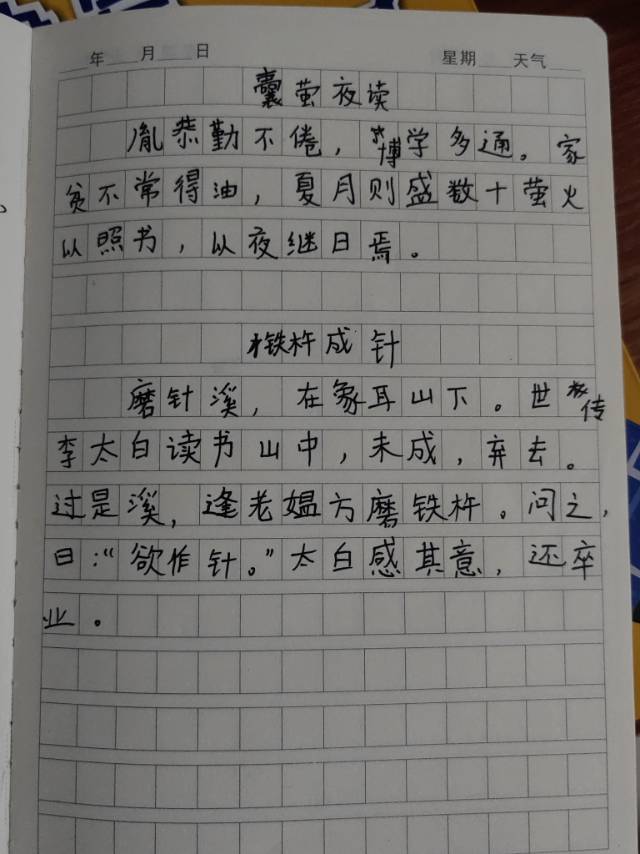 年 月 日 星期 天气
囊萤夜读
胤恭勤不倦，博学多通。家
贫不常得油，夏月则盛数十萤火
以照书，以夜继日焉。
铁杵成针
磨针溪，在象耳山下。世传
李太白读书山中，未成，弃去。
过是溪，逢老媪方磨铁杵。问之，
曰：“欲作针。”太白感其意，还卒
业。